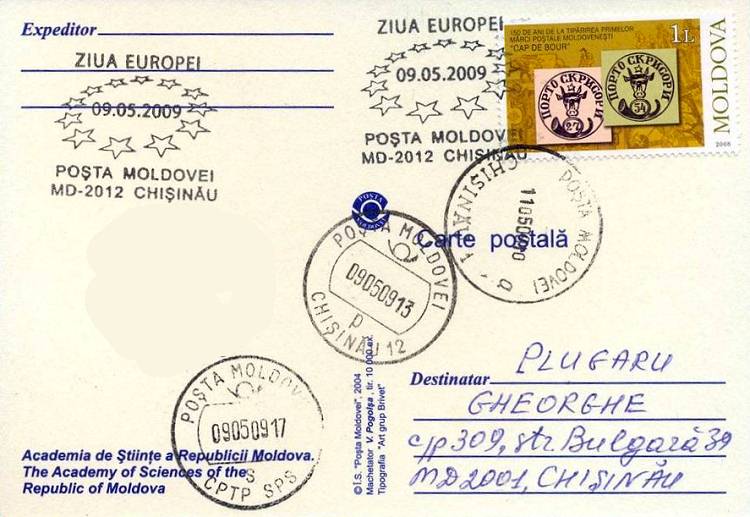 Expeditor
ZIUA EUROPEI
09.05.2009
POȘTA MOLDOVEI
MD-2012 CHIȘINĂU
ZIUA EUROPEI
09.05.2009
POȘTA MOLDOVEI
MD-2012 CHIȘINĂU
150 DE ANI DE LA TIPĂRIREA PRIMELOR
MĂRCI POȘTALE MOLDOVENEȘTI
"CAP DE BOUR"
1L
MOLDOVA
ПОРТО СКРИСОРИ
27
ПОРТО СКРИСОРИ
54
2008
POȘTA MOLDOVEI
CHIȘINĂU
a
POȘTA
MOLDOVEI
Carte poștală
POȘTA MOLDOVEI
09050913
p
CHIȘINĂU 12
POȘTA MOLDOV
09050917
S
CPTP SPS
© Î.S. "Poșta Moldovei", 2004
Machetator V. Pogolșa, tir. 10 000 ex.
Tipografia "Art grup Brivet"
Destinatar
PLUGARU
GHEORGHE
c/p 309, str. Bulgară 39
MD2001, CHIȘINĂU
Academia de Științe a Republicii Moldova.
The Academy of Sciences of the
Republic of Moldova